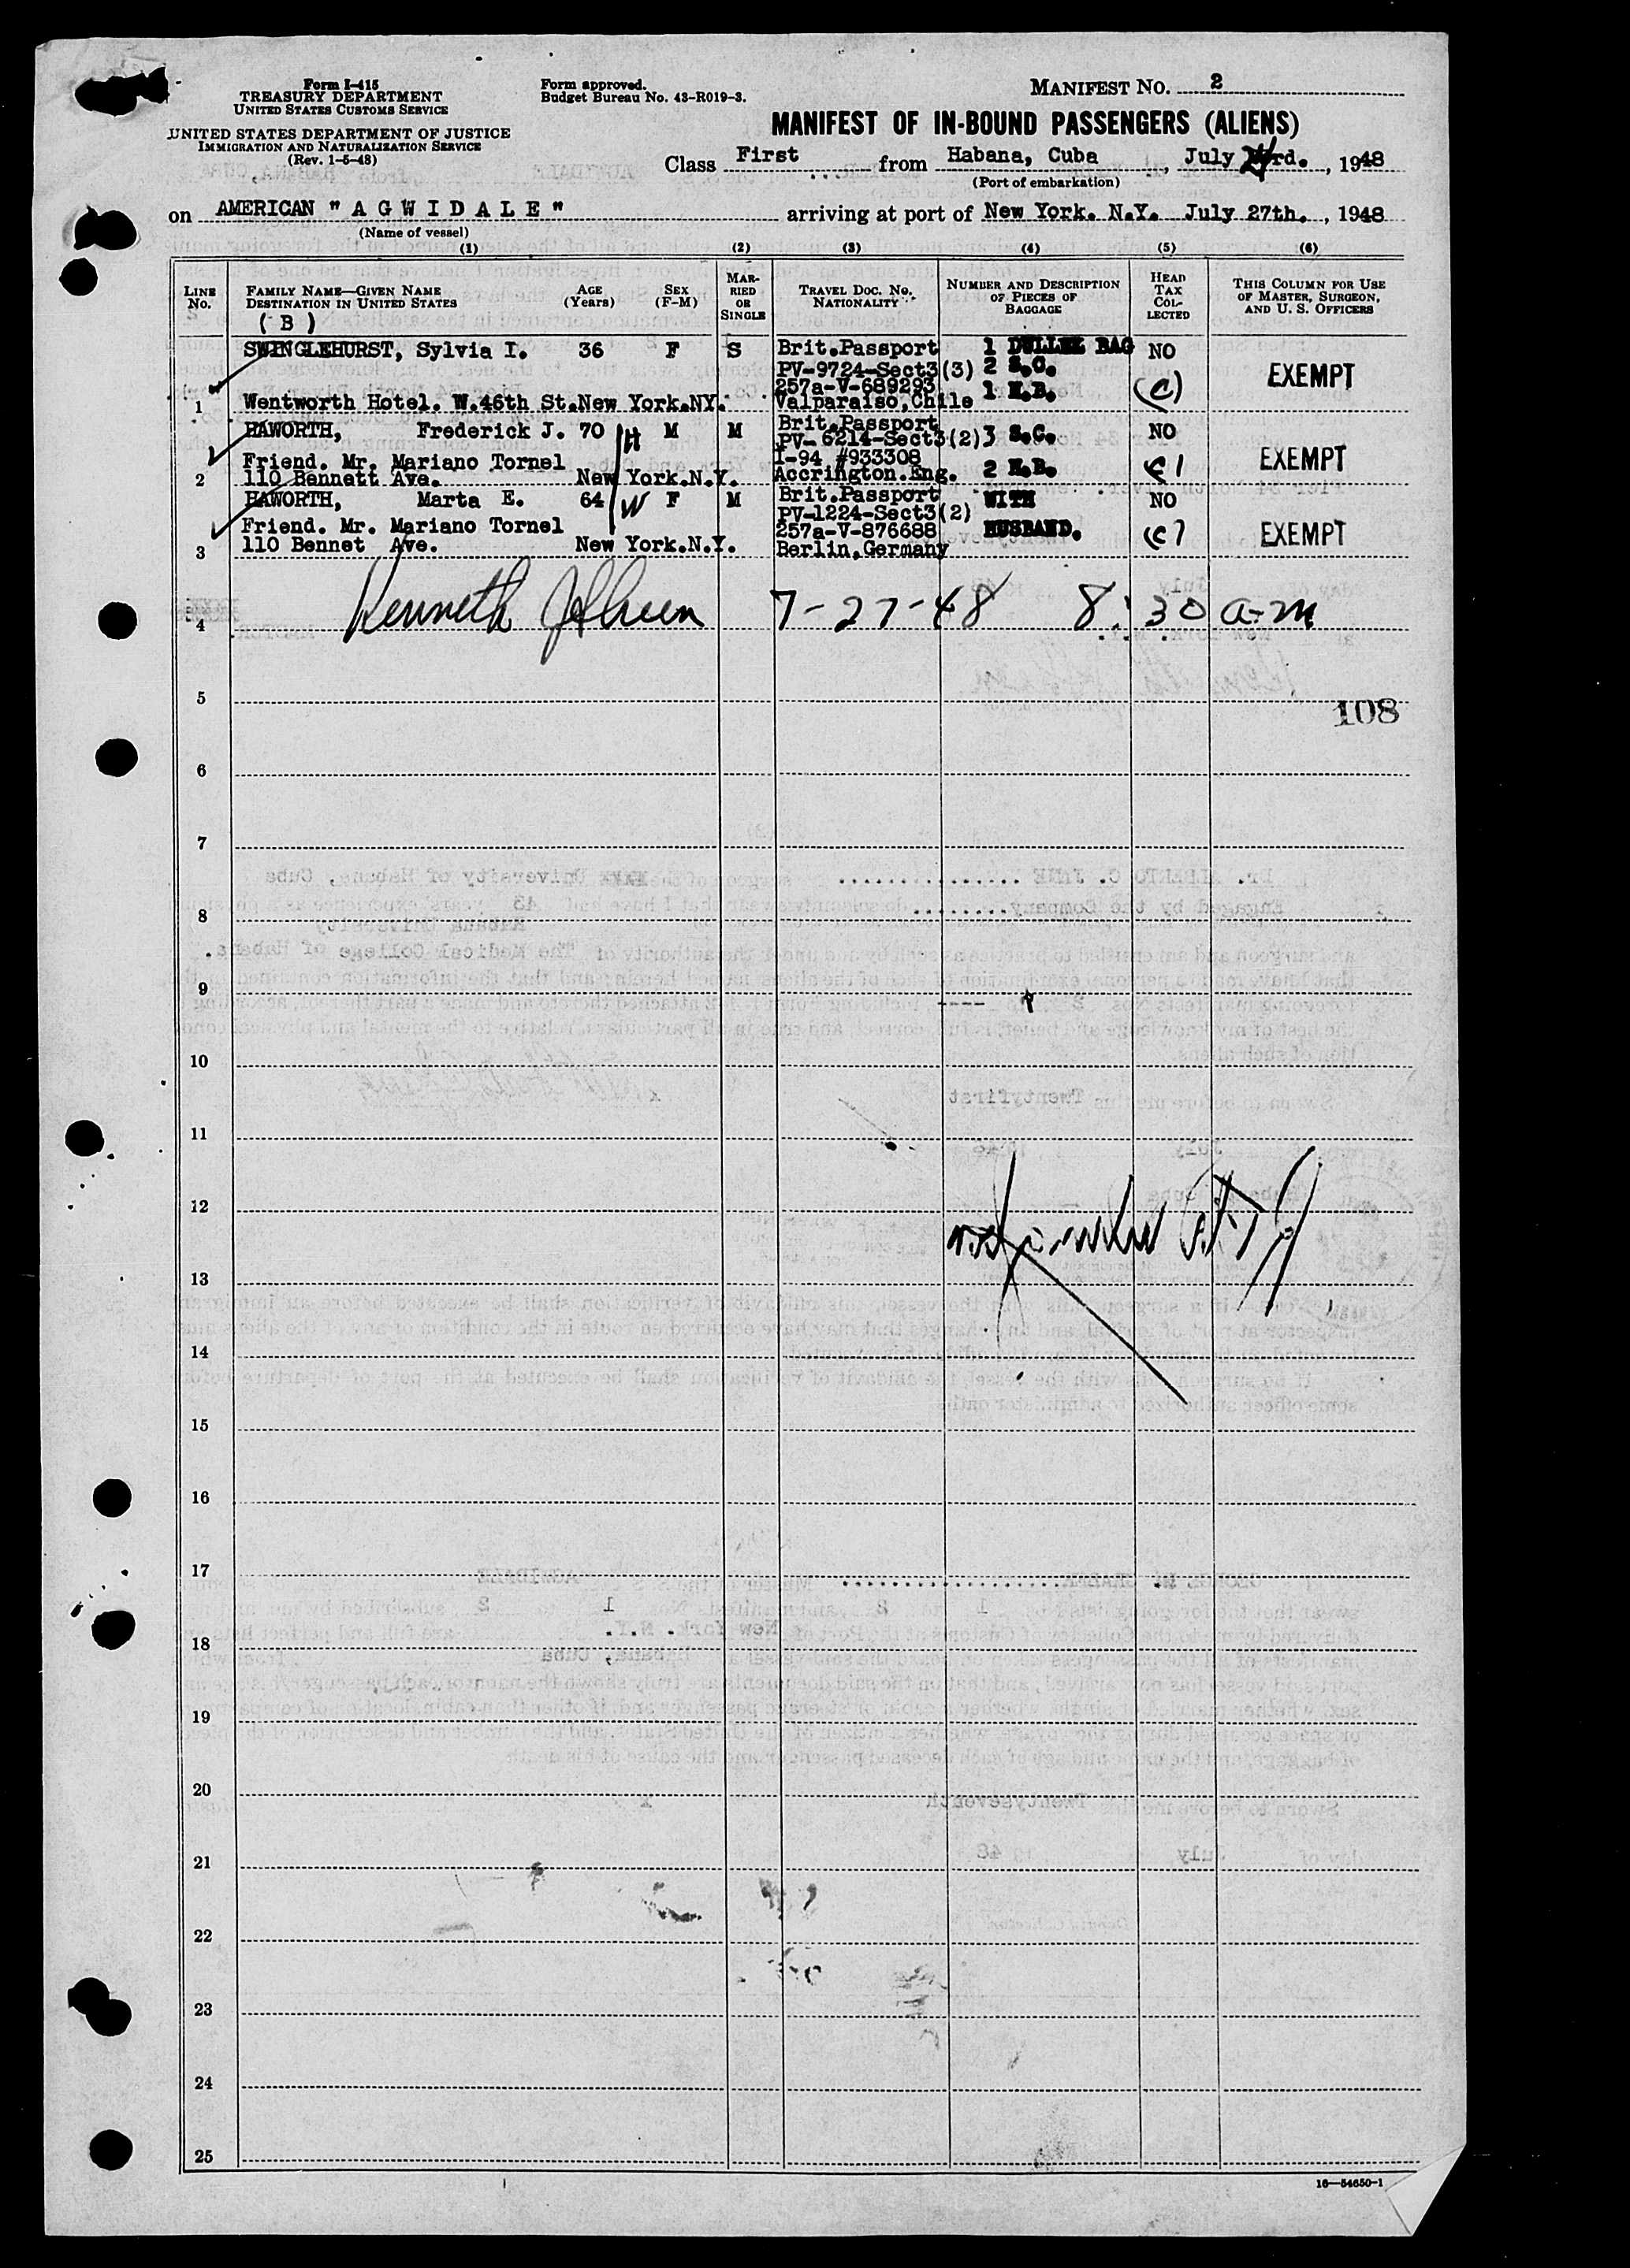 Form I-415
TREASURY DEPARTMENT
UNITED STATES CUSTOMS SERVICE
UNITED STATES DEPARTMENT OF JUSTICE
IMMIGRATION AND NATURALIZATION SERVICE
(Rev. 1-5-48)
Form approved.
Budget Bureau No. 43-R019-3.
MANIFEST NO. 2
MANIFEST OF IN-BOUND PASSENGERS (ALIENS)
Class First from Habana, Cuba, July rd., 1948
(Port of embarkation)
on AMERICAN "AGWIDALE" arriving at port of New York. N.Y. July 27th., 1948
(Name of vessel)
(1) (2) (3) (4) (5) (6)
LINE No.
FAMILY NAME—GIVEN NAME
DESTINATION IN UNITED STATES
AGE (Years)
SEX (F-M)
MARRIED OR SINGLE
TRAVEL DOC. NO. NATIONALITY
NUMBER AND DESCRIPTION OF PIECES OF BAGGAGE
HEAD TAX COLLECTED
THIS COLUMN FOR USE OF MASTER, SURGEON, AND U. S. OFFICERS
( B )
SWINGLEHURST, Sylvia I. 36 F S Brit.Passport 1 BAG NO
PV-9724-Sect3(3) 2 S.C. EXEMPT
257a-V-689293 1 H.B. (c)
1 Wentworth Hotel. W.46th St.New York.NY. Valparaiso,Chile
HAWORTH, Frederick J. 70 H M M Brit.Passport NO
PV-6214-Sect3(2) 3 S.C.
Friend. Mr. Mariano Tornel I-94 #933308 EXEMPT
2 110 Bennett Ave. New York.N.Y. Accrington.Eng. 2 H.B.
HAWORTH, Marta E. 64 W F M Brit.Passport WITH NO
PV-1224-Sect3(2)
Friend. Mr. Mariano Tornel 257a-V-876688 HUSBAND. EXEMPT
3 110 Bennet Ave. New York.N.Y. Berlin,Germany
4 Kenneth 7-27-48 8:30 a-m
5
108
6
7
8
9
10
11
12
13
14
15
16
17
18
19
20
21
22
23
24
25
16—54650-1